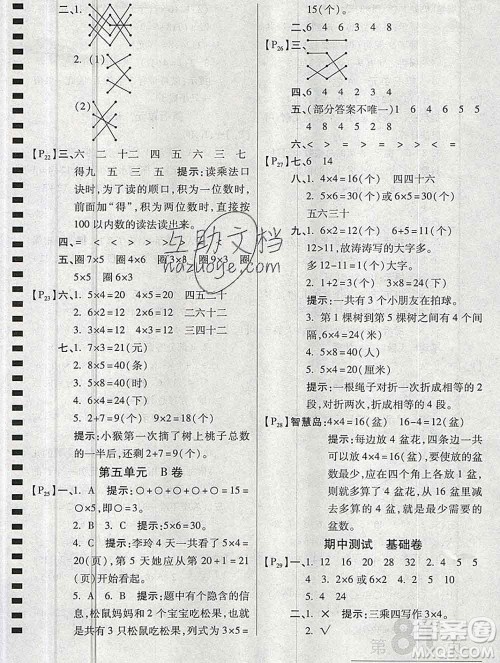 二、1.
2. (1)
(2)
【P22】三、六 二十 二十 四 五 六 三 七
得九 五 三 五 五 提示:读乘法口
诀时,为了读的顺口,积为一位数时,
前面加“得”,积为两位数时,直接按
100以内数的读法读出来。
五、圈7×5 圈8×6 圈9×5 圈3×8 圈
5×5 圈6×3
【P23】六、1. 5×4=20 4×5=20 四五二十
2. 6×2=12 2×6=12 二六十二
3. 3×4=12 4×3=12 三四十二
七、1. 7×3=21(元)
2. 8×5=40(条)
3. 5×8=40(下)
4. 4×6=24(下)
5. 2+7=9(个) 9×2=18(个)
提示:小猴第一次摘了树上桃子总数
的一半,还剩2+7=9(个)。
第五单元 B卷
【P25】一、1. A 提示:○+○+○+○+○=
5×○。
2. B 3. C 提示:5×6=30。
4. B 5. C 提示:李玲4天一共看了
5×4=20(页)那么她应从第20+1=21
(页)开始看。
6. C 7. B 提示:题中有个隐含的信
息:松鼠妈妈和2个宝宝吃松果,也
就是共有3只松鼠吃松果,列式为3×5=
15(个)。
【P26】三、
四、6 3 4 8
五、6 6 3 2 4 3 4 8
四、1 6 4 8 3 4 7
五、(部分答案不唯一)1 4 6 5 5
5 8 4 8
【P27】七、6 14
八、1. 4×4=16(元) 四四十六
2. 5×6=30(或6×5=30)(元)
五六三十
九、1. 6×2=12(个) 9+2=11(个)
12>11,故涛涛写的大字多。
2. 4×3=12(个) 3×8=24(下)
提示:一共有3个小朋友在拍球。
3. 第1棵树到第5棵树共有4个间
隔,4×5=20(米)。
4. 5×8=40(人)
5. 4×5=20(厘米)
提示:一根绳子对折一次折成相等的
2段,对折两次折成相等的4段。
【P28】智慧岛:4×4=16(盆) 16-4=12(盆)
提示:每边放4盆花,4边共放4×4=
16(盆)花,在4个角处各有1盆花,
都被加了2次,所以应从16盆里面
减去4盆花,就是需要花的总盆数,
即16-4=12(盆)花。
期中测试 基础卷
【P29】一、1. 12 16 20 24 28 32 36
二、1. × 提示:三乘四写作3×4。
2. √